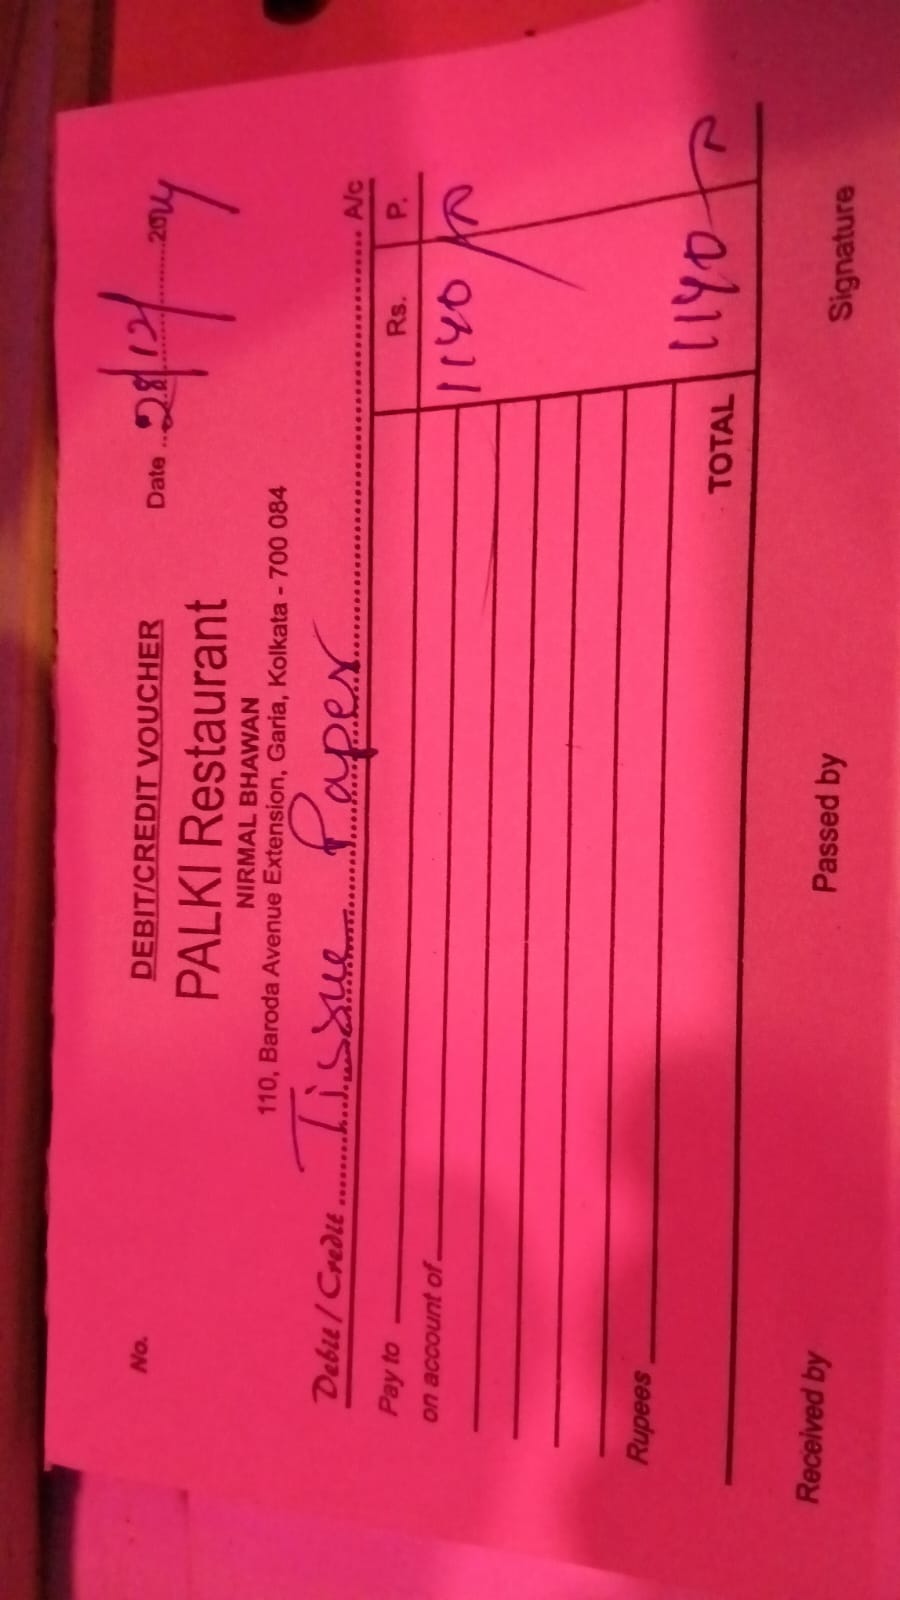 No.
DEBIT/CREDIT VOUCHER
Date 28/12/2024
PALKI Restaurant
NIRMAL BHAWAN
110, Baroda Avenue Extension, Garia, Kolkata - 700 084
Debit / Credit Tissue Paper A/c
Pay to Rs. P.
on account of 1140/
Rupees
TOTAL 1140
Received by Passed by Signature